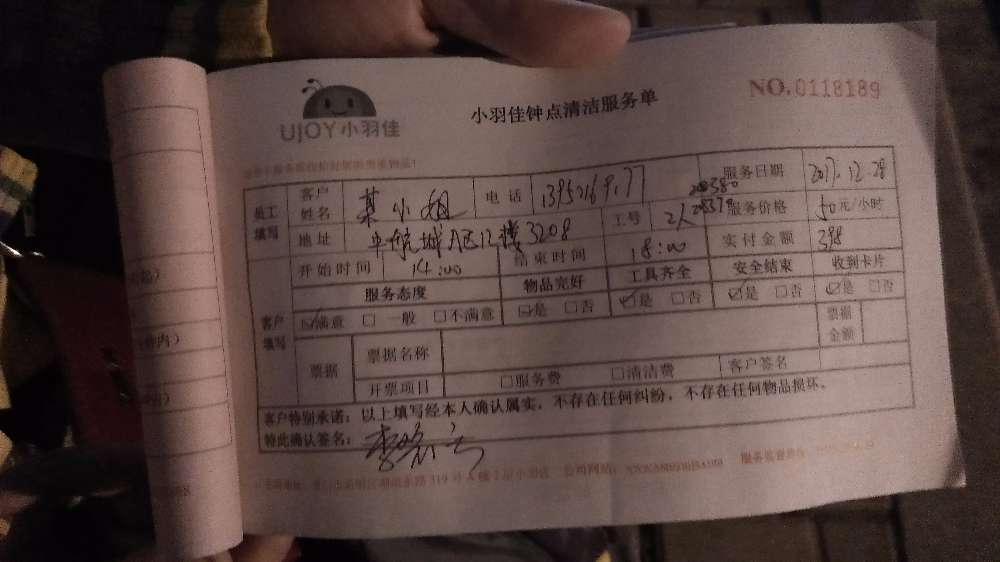 UJOY小羽佳
小羽佳钟点清洁服务单
NO.0118189
员工填写 客户姓名 某小姐 电话 服务日期 2017.12.28
地址 A区12楼3208 工号 2人 服务价格 50元/小时
开始时间 14:00 结束时间 18:00 实付金额 398
客户填写 服务态度 物品完好 工具齐全 安全结束 收到卡片
☑满意 □一般 □不满意 ☑是 □否 ☑是 □否 ☑是 □否 ☑是 □否
票据 票据名称 票据金额
开票项目 □服务费 □清洁费 客户签名
客户特别承诺：以上填写经本人确认属实，不存在任何纠纷，不存在任何物品损坏。
特此确认签名：